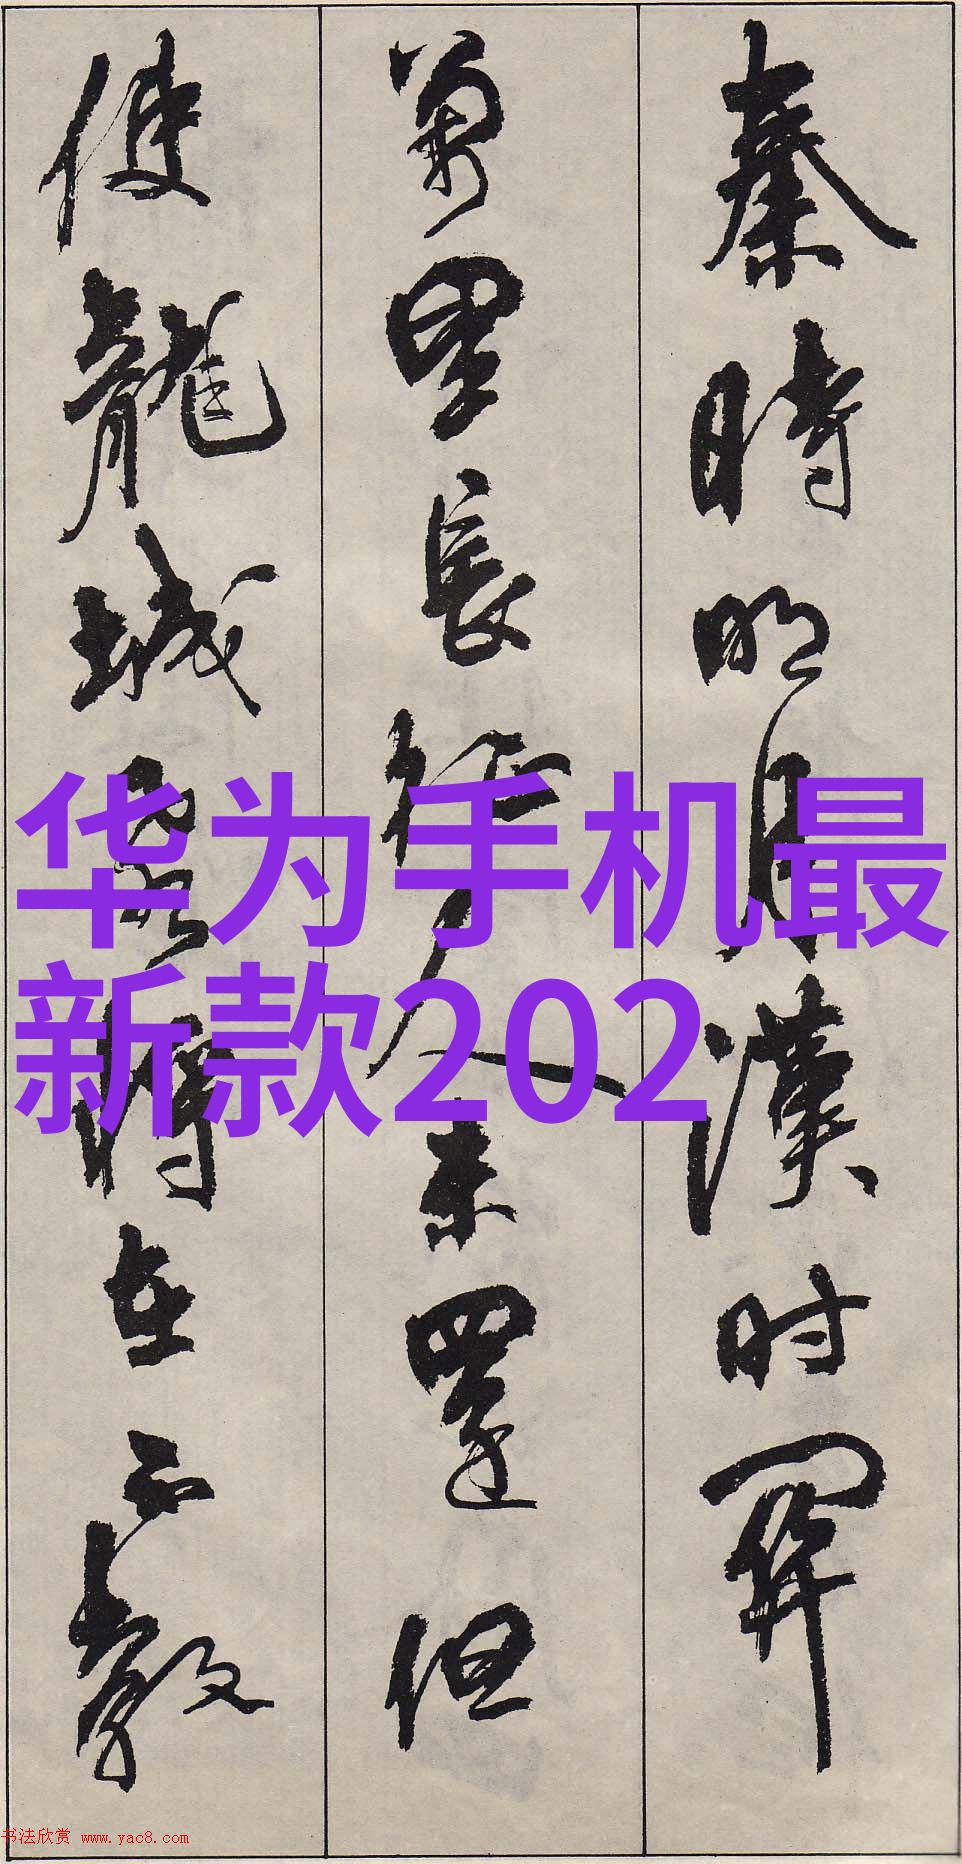 秦時明月漢时関
萬里長征人未還但
使龍城飛將在不教
华为手机最
新款202
书法欣赏 www.yac8.com